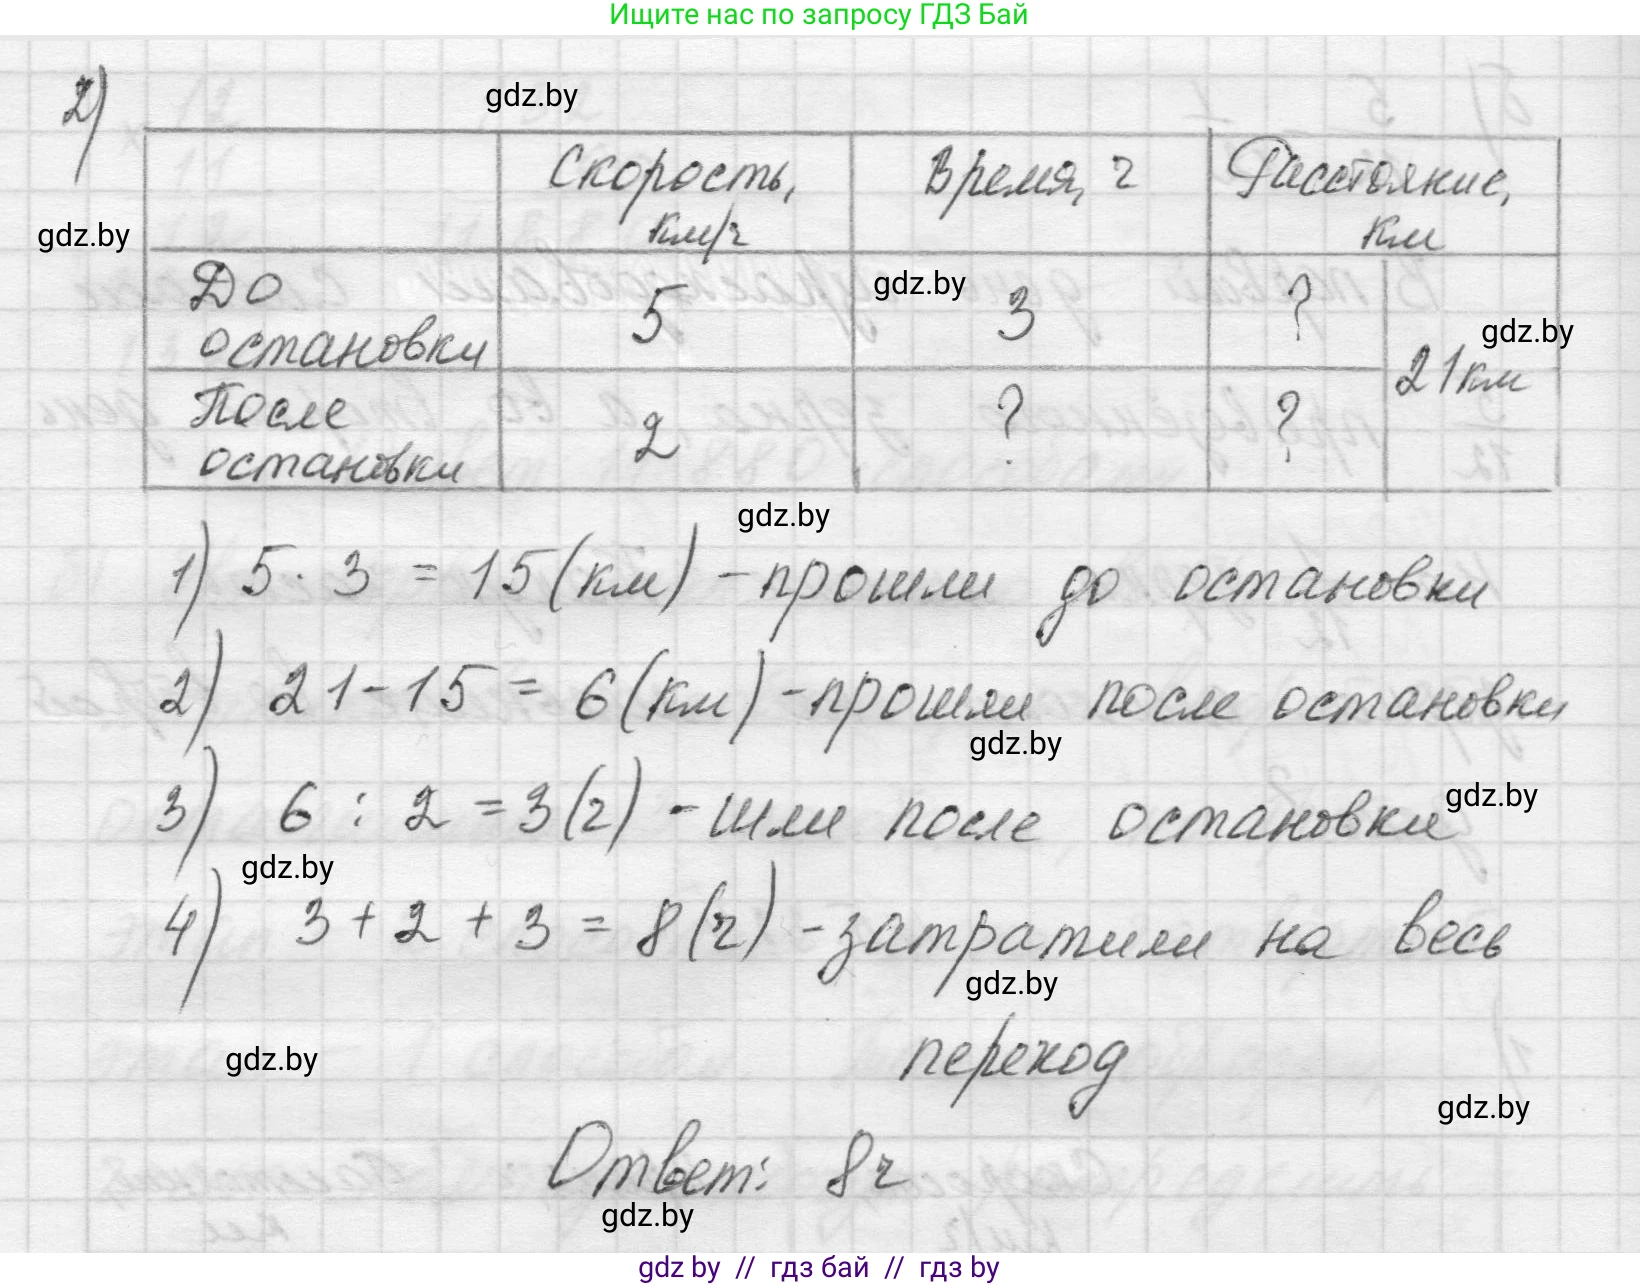 Ищите нас по запросу ГДЗ Бай
2)
gdz.by
Скорость, км/ч
Время, ч
Расстояние, км
gdz.by
До остановки
5
gdz.by
3
?
gdz.by
21 км
После остановки
2
?
?
gdz.by
1) 5 · 3 = 15 (км) - прошли до остановки
2) 21 - 15 = 6 (км) - прошли после остановки
gdz.by
3) 6 : 2 = 3 (ч) - шли после остановки
gdz.by
gdz.by
4) 3 + 2 + 3 = 8 (ч) - затратили на весь
gdz.by
переход
gdz.by
gdz.by
Ответ: 8 ч
gdz.by
gdz by // гдз бай // гдз by